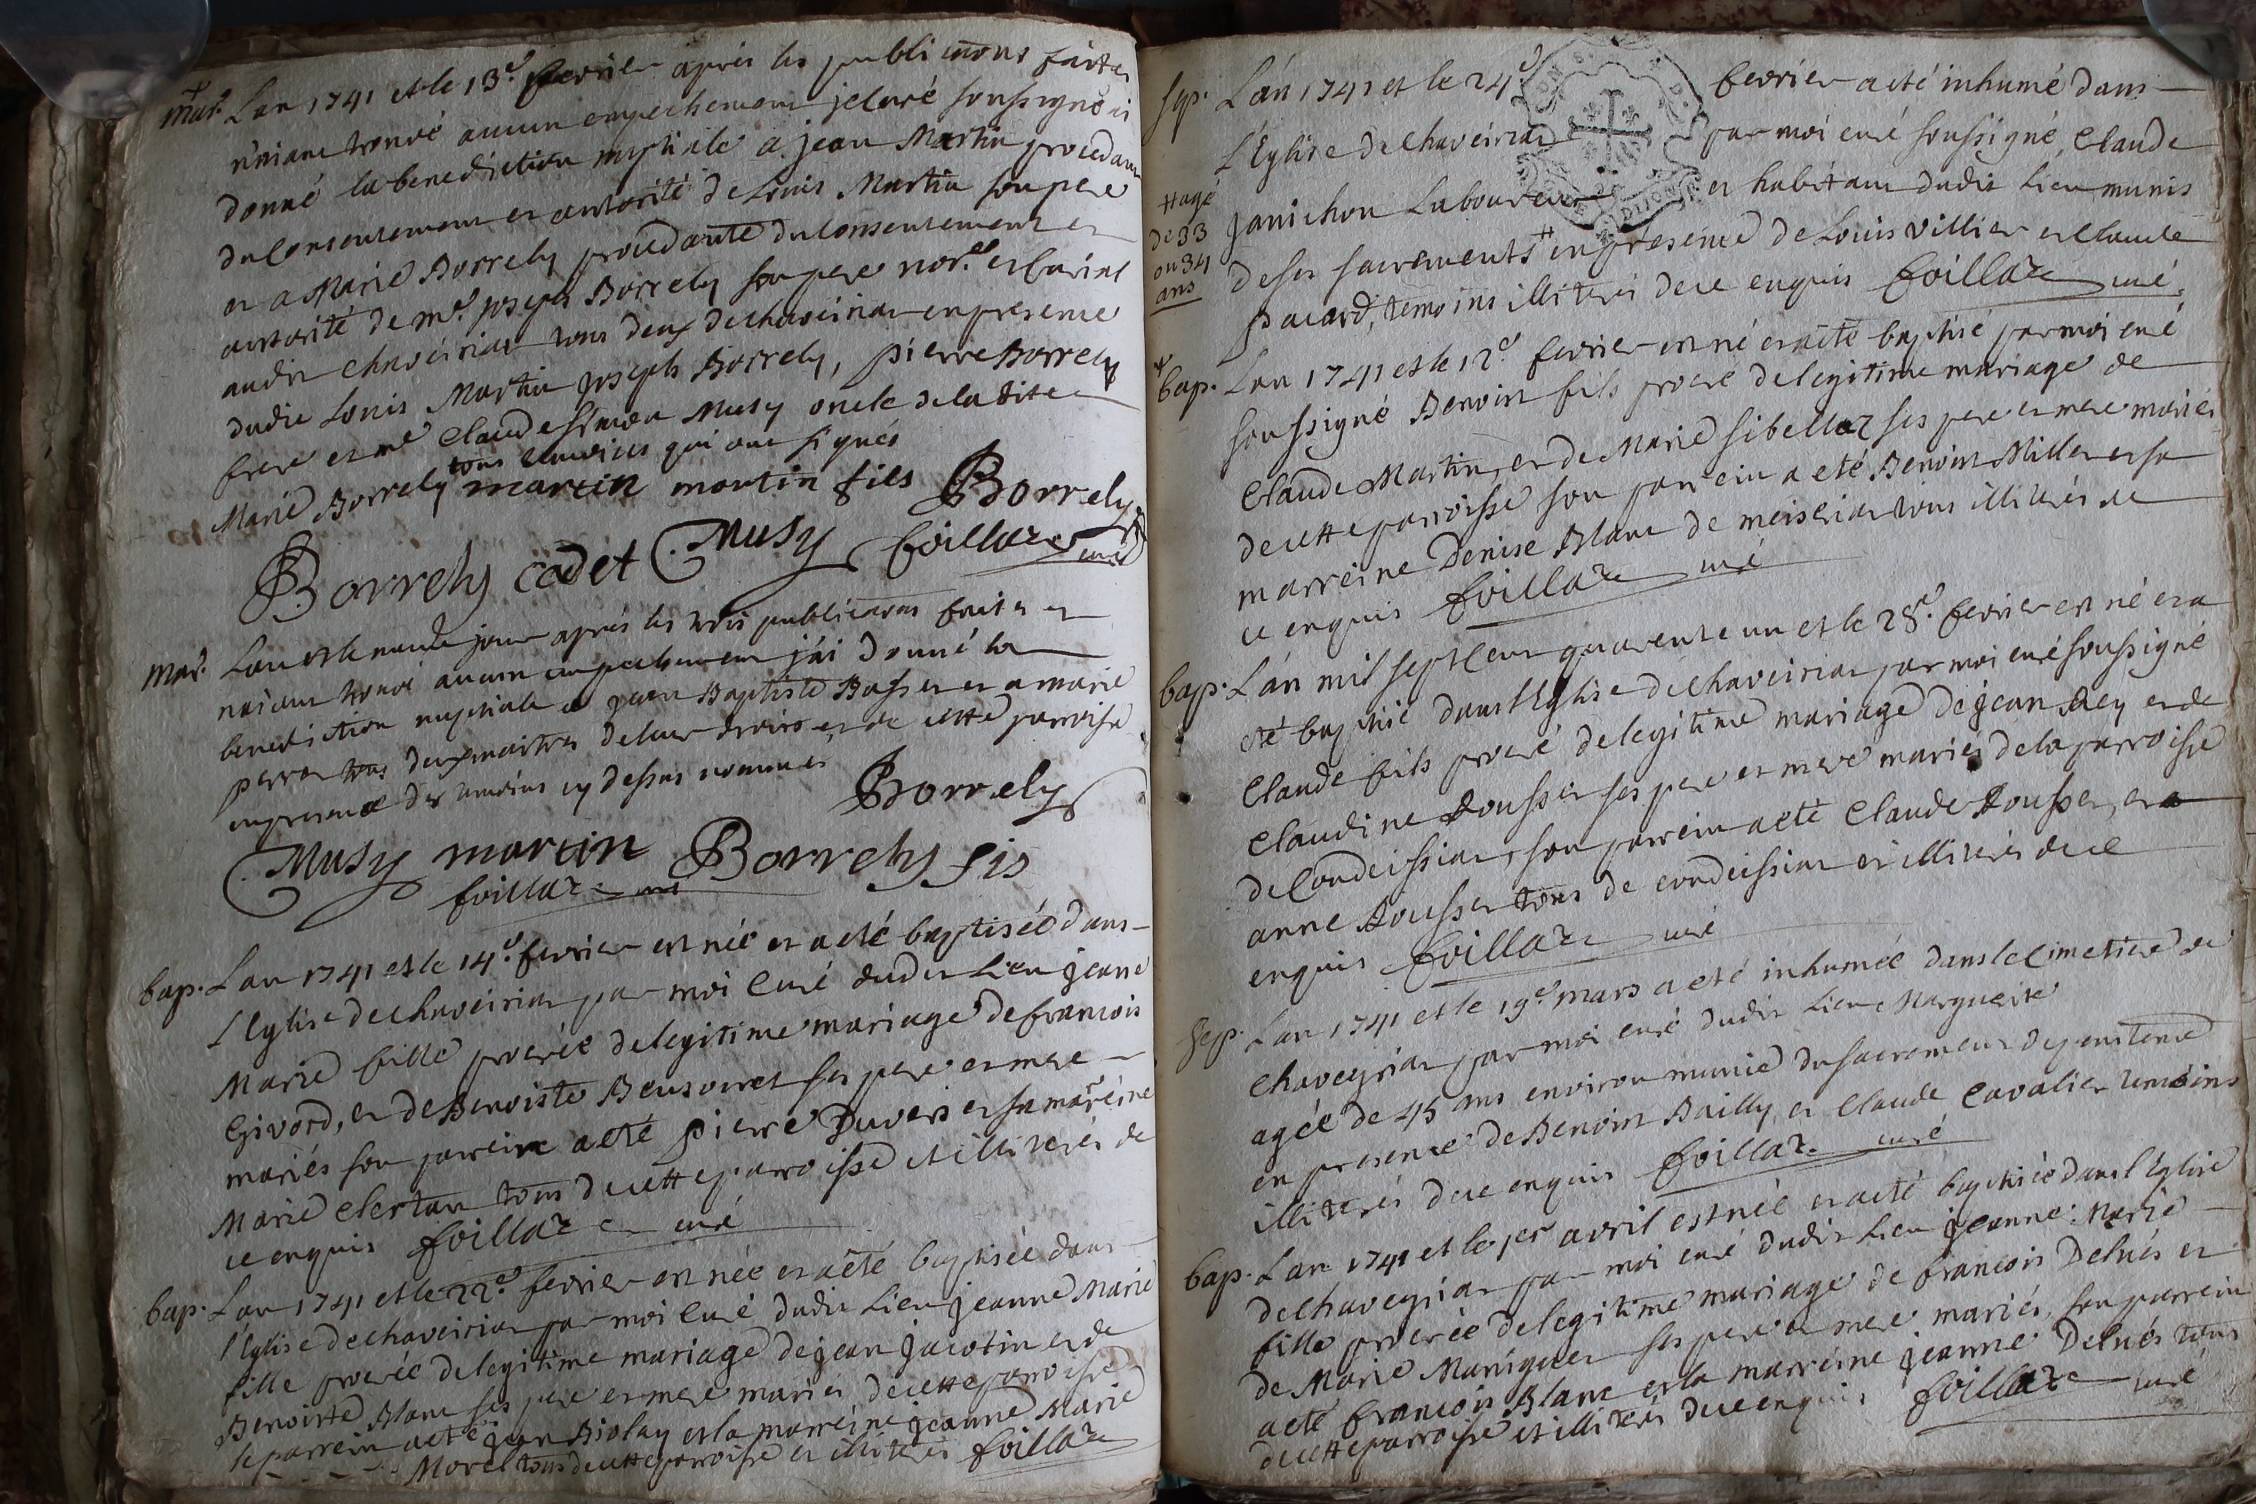 mar. Lan 1741 et le 13.e fevrier apres les publications faites
n'aiant trouvé aucun empechement je curé soussigné ai
donné la benediction nuptiale a jean Martin procedant
du Consentement et autorité de Louis Martin son pere
et a Marie Borrely procedante du consentement et
autorité de me. joseph Borrely son pere nore. et Curial
audit Chaveiriat tous deux de chaveiriat en presence
dudit Louis Martin joseph Borrely, pierre Borrely
frere et me Claude Simeon Musy oncle de la dite
Marie Borrely tous temoins qui ont signés
martin martin fils Borrely
Borrely cadet Musy foillaz curé
mar. Lan et le meme jour après les trois publications faites et
naiant trouvé aucun empechement j'ai donné la
benediction nuptiale a jean Baptiste Basset et a marie
perret tous deux maitres de leur droits et de cette parroisse
en presence des temoins cy dessus nommes Borrely
Musy martin Borrely fis
foillaz curé
bap. Lan 1741 et le 14.e fevrier est née et a eté baptisée dans
L'Eglise de chaveiriat par moi Curé dudit Lieu jeane
Marie fille procréée de legitime mariage de francois
Givord, et de Benoiste Bensonnet ses pere et mere
mariés son parrein a eté pierre Duvers et sa marreine
Marie Clertan tous de cette parroisse et illiterés de
ce enquis foillaz curé
bap. Lan 1741 et le 22.e fevrier est née et a eté baptisée dans
l'Eglise de chaveiriat par moi Curé dudit Lieu jeanne Marie
fille procréée de legitime mariage de jean jacotin et de
Benoiste Blanc ses pere et mere mariés de cette parroisse
le parrein a eté jean Biolay et la marreine jeanne Marie
Morel tous de cette parroisse et illiterés foillaz
sep. L'án 1741 et le 24e fevrier a eté inhumé dans
L'Eglise de Chaveiriat par moi curé soussigné, Claude
janichon Laboureur et habitant dudit Lieu munis
de ses sacrements # en presence de Louis villier et Claude
# agé
de 33
ou 34
ans
pacard, temoins illiterés de ce enquis foillaz curé
bap. Lan 1741 et le 12e fevrier est né et a eté baptisé par moi curé
soussigné Benoist fils procréé de legitime mariage de
Claude Martin, et de Marie Sibellaz ses pere et mere mariés
de cette parroisse son parrein a eté Benoist Millet et sa
marreine Denise Blanc de meiseriat tous illiterés de
ce enquis foillaz curé
bap. L'án mil sept Cent quarente un et le 28e. fevrier est né et a
eté baptisé dans l'Eglise de chaveiriat par moi curé soussigné
Claude fils procréé de legitime mariage de jean Rey et de
Claudine Rousset ses pere et mere mariés de la parroisse
de Condeissiat, son parrein a eté Claude Rousset, et a
anne Rousset tous de condeissiat et illiterés de ce
enquis foillaz curé
sep. Lan 1741 et le 19e mars a eté inhumée dans le Cimetiere de
Chaveyriat, par moi curé dudit Lieu Marguerite
agée de 45 ans environ munie du sacrement de penitence
en presence de Benoist Bailly, et Claude Cavalier temoins
illiterés de ce enquis foillaz curé
bap. Lan 1741 et le 1er avril est née et a eté baptisée dans l'Eglise
de chaveyriat par moi curé dudit Lieu jeanne Marie
fille procréée de legitime mariage de francois Delués et
de Marie Maniguet ses pere et mere mariés, son parrein
a eté francois Blanc et la marreine jeanne Delués tous
de cette parroisse et illiterés de ce enquis foillaz curé